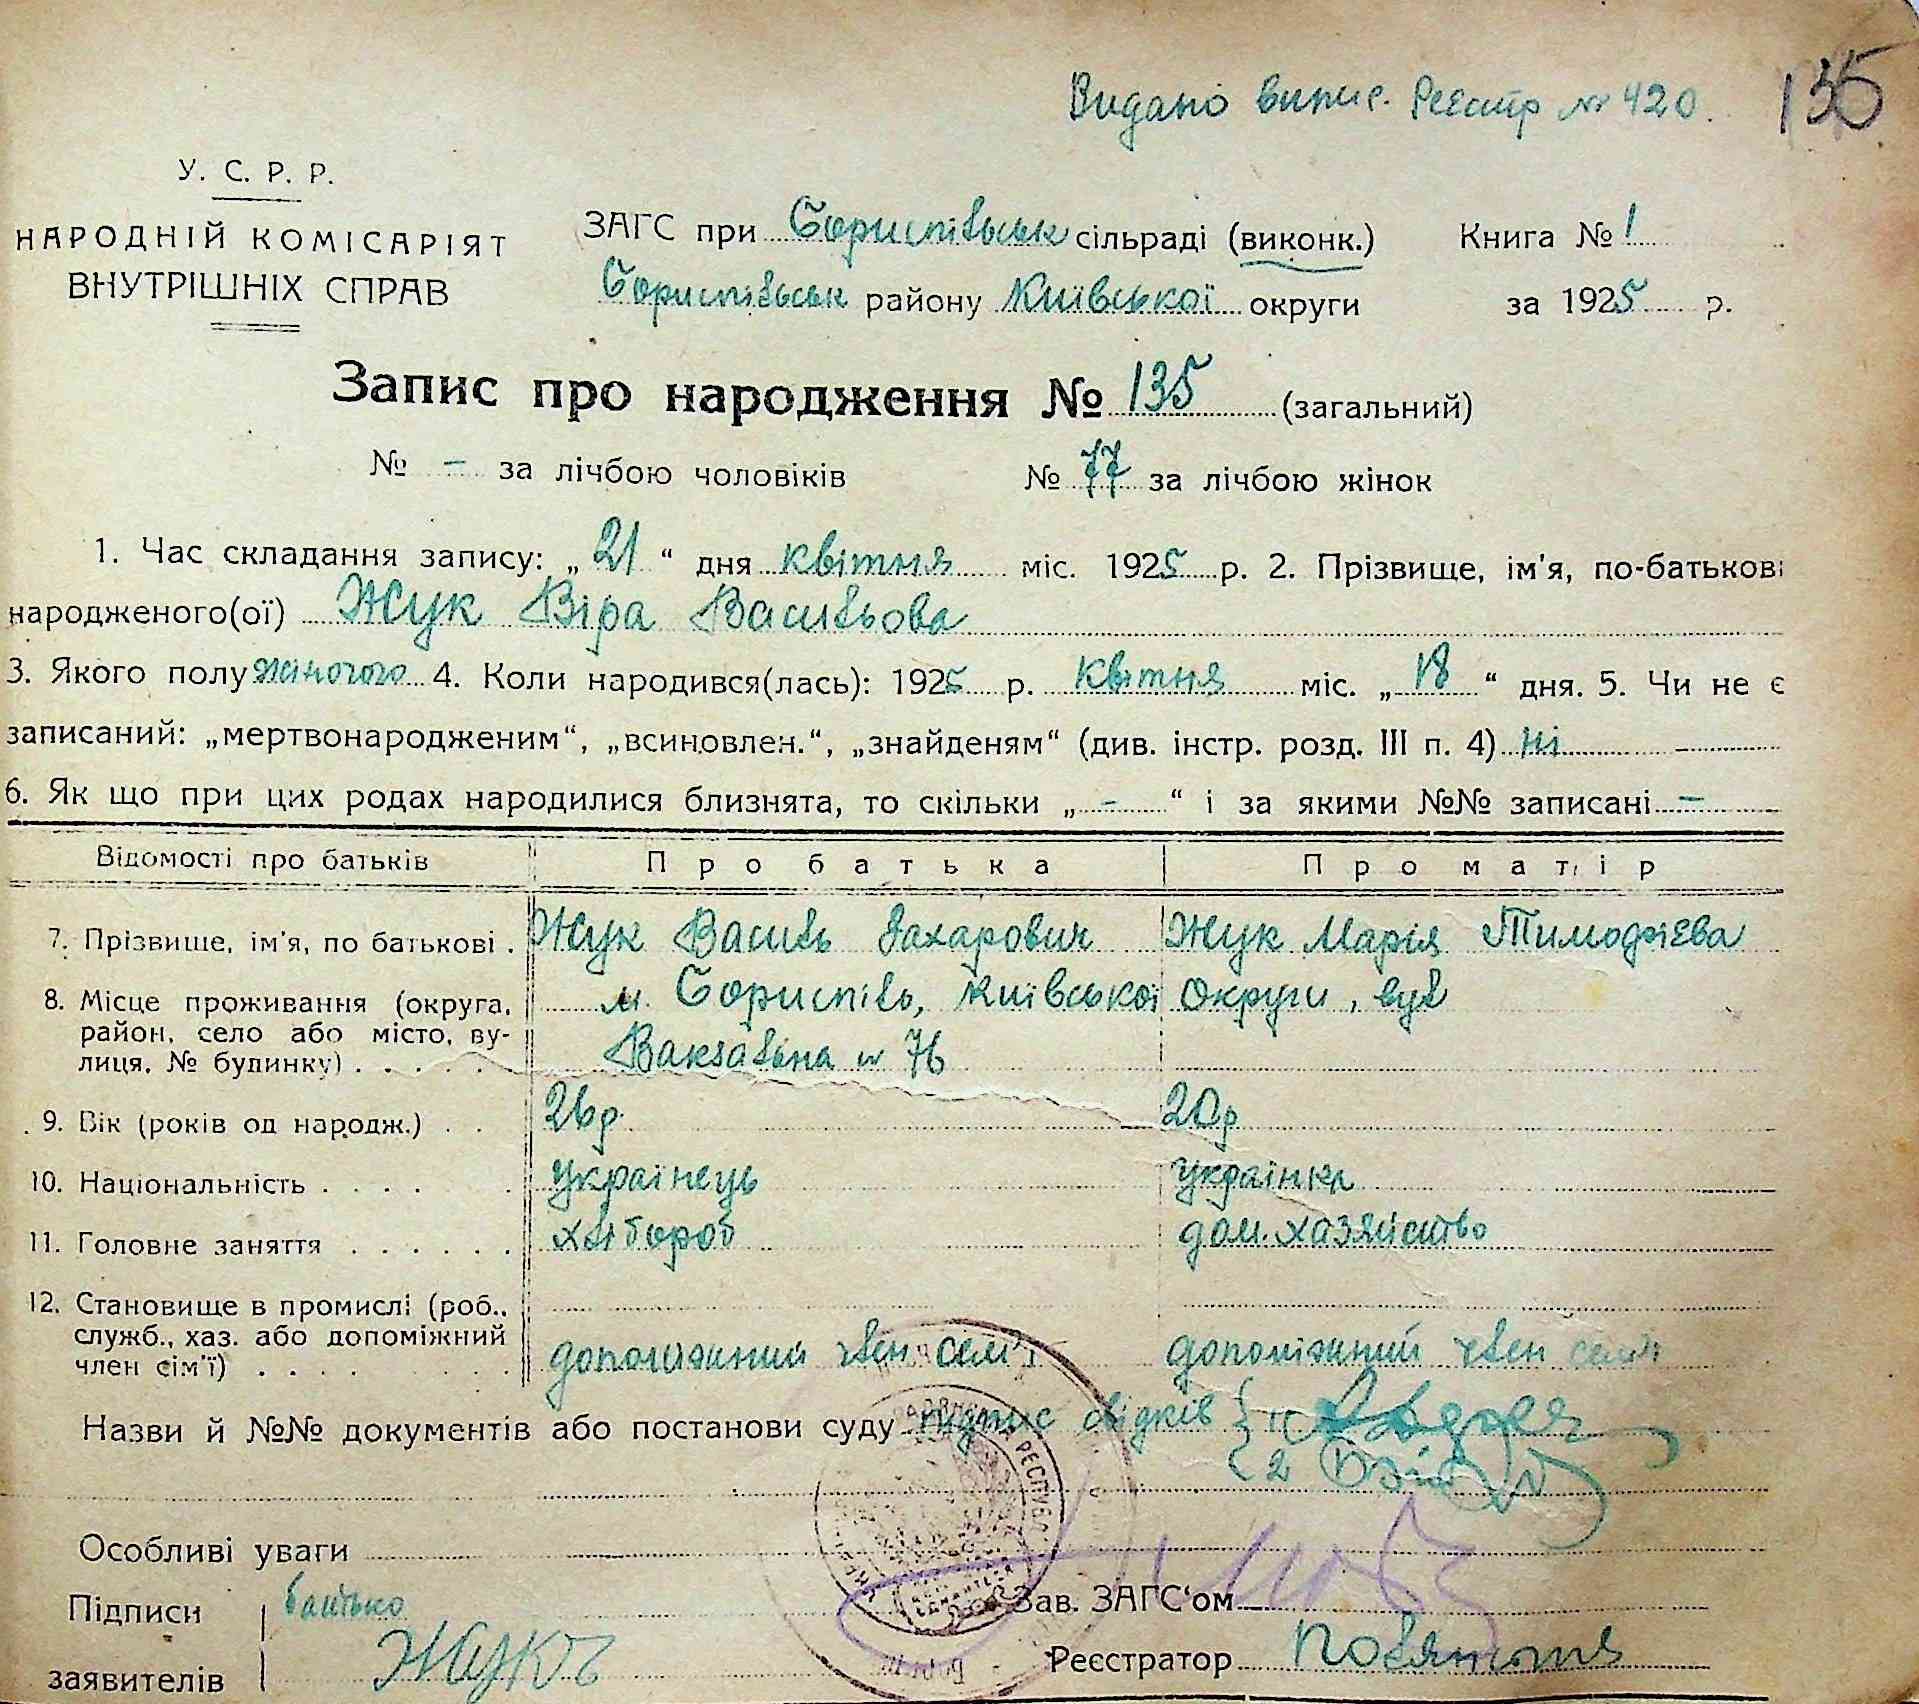 Видано випис. Реєстр № 420. 135
У. С. Р. Р.
НАРОДНІЙ КОМІСАРІЯТ
ВНУТРІШНІХ СПРАВ
ЗАГС при Бориспільськ сільраді (виконк.) Книга № 1
Бориспільськ району Київської округи за 1925 р.
Запис про народження № 135 (загальний)
№ - за лічбою чоловіків № 77 за лічбою жінок
1. Час складання запису: „21“ дня квітня міс. 1925 р. 2. Прізвище, ім'я, по-батькові
народженого(ої) Жук Віра Васильова
3. Якого полу жіночого 4. Коли народився(лась): 1925 р. квітня міс. „18“ дня. 5. Чи не є
записаний: „мертвонародженим“, „всиновлен.“, „знайденям“ (див. інстр. розд. III п. 4) ні
6. Як що при цих родах народилися близнята, то скільки „-“ і за якими №№ записані -
Відомості про батьків Про батька Про матір
7. Прізвище, ім'я, по батькові . Жук Василь Захарович Жук Марія Тимофієва
8. Місце проживання (округа, м. Бориспіль, Київської Округи, вул
район, село або місто, ву-
лиця, № будинку) . . . . . Вакзальна № 76
9. Вік (років од народж.) . . 26 р. 20 р
10. Національність . . . . . українець українка
11. Головне заняття . . . . . . хлібороб дом. хазяйство
12. Становище в промислі (роб.,
служб., хаз. або допоміжний
член сім'ї) . . . . . . допоміжний член сем'ї допоміжний член сем'ї
Назви й №№ документів або постанови суду підпис свідків { 1
{ 2
Особливі уваги
Підписи батько Зав. ЗАГС'ом
заявителів Жукъ Реєстратор